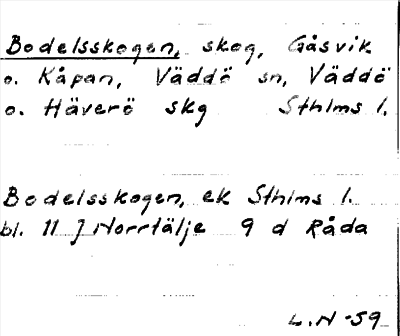 Bodelsskogen, skog, Gåsvik
o. Kåpan, Väddö sn, Väddö
o. Häverö skg Sthlms l.
Bodelsskogen, ek Sthlms l.
bl. 11 J Norrtälje 9 d Råda
L.N -59